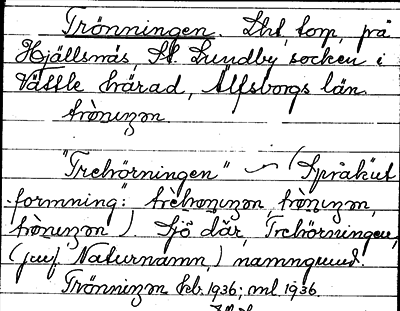 Trönningen. Lht, torp, på
Hjällsnäs, St. Lundby socken i
Vättle härad, Älfsborgs län.
trònɩŋən.
"Trehörningen" ~ (Språklut
formning: trèhonɩŋən, trònɩŋən,
trònɩŋən). Sjö där, Trehörningen,
(jmf. Naturnamn,) namngrund.
Trönningen kb. 1936; ml. 1936.